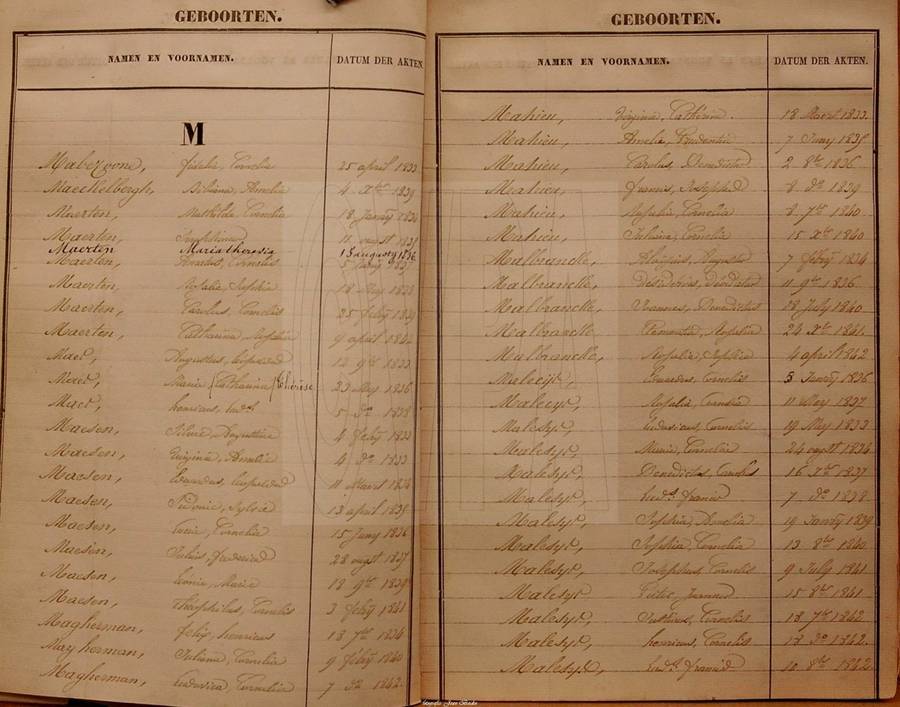 GEBOORTEN.
NAMEN EN VOORNAMEN. DATUM DER AKTEN.
M
Mabezoone, fidelia, Cornelia 25 april 1833
Maeckelbergh, Siliana, Amelia 4 Xbre 1839
Maerten, Mathilde Cornelia 18 Janry 1836
Maerten, Josephina 11 augst 1835
Maerten Maria theresia 13 augusty 1836
Maerten, Amatus, Cornelius 5 1837
Maerten, Rosalia, Sophia 18 May 1838
Maerten, Carolus, Cornelis 25 febry 1839
Maerten, Catharina, Rosalia 9 april 1842
Maes, Augustus, Leopoldus 12 9bre 1833
Maes, Marie (Catharina) Thérèse 23 May 1836
Maes, henricus, Lud. 5 do 1838
Maesen, Silvia, Augustina 4 febry 1833
Maesen, Virginia, Amelia 4 do 1833
Maesen, Eduardus, Leopoldus 11 Maart 1834
Maesen, Sidonie, Sylvia 13 april 1835
Maesen, Lucia, Cornelia 15 Juny 1836
Maesen, Julius, frederica 28 augst 1837
Maesen, Leonie, Marie 18 9bre 1839
Maesen, Théophilus, Cornelis 3 febry 1841
Magherman, felix, henricus 13 7bre 1834
Magherman, Juliana, Cornelia 9 febry 1840
Magherman, Ludovica, Cornelia 7 do 1842
GEBOORTEN.
NAMEN EN VOORNAMEN. DATUM DER AKTEN.
Mahieu, Virginia, Catherina. 18 Maart 1833
Mahieu, Amelia, Prudentia 7 Juny 1835
Mahieu, Carolus, Benedictus 2 8bre 1836
Mahieu, francis, Josephus 8 do 1839
Mahieu, Rosalia, Cornelia 8 7bre 1840
Mahieu, Juliana, Cornelia 15 Xbre 1840
Malbrancke, Aloysius, Augusta 7 febry 1834
Malbrancke, Desiderius, Déodatus 11 9bre 1836
Malbrancke, Joannes, Benedictus 28 July 1840
Malbrancke, Clementia, Rosalia 24 Xbre 1841
Malbrancke, Rosalia, Sophia 4 april 1842
Malesys, Eduardus, Cornelis 5 Janry 1836
Malesys, Rosalia, Cornelia 11 May 1837
Malesys, Ludovicus, Cornelis 19 May 1833
Malesys, Marie, Cornelia 24 augst 1834
Malesys, Benedictus, Carolus 16 Xbre 1837
Malesys, Lud. francis 7 do 1838
Malesys, Sophia, Amelia 19 Janry 1839
Malesys, Sophia, Cornelia 13 8bre 1840
Malesys, Josephus, Cornelis 9 July 1841
Malesys, Pieter, Joannes 15 8bre 1841
Malesys, Justinus, Cornelis 18 7bre 1842
Malesys, henricus, Cornelis 13 do 1842.
Malesys, Lud. francis 10 8bre 1842